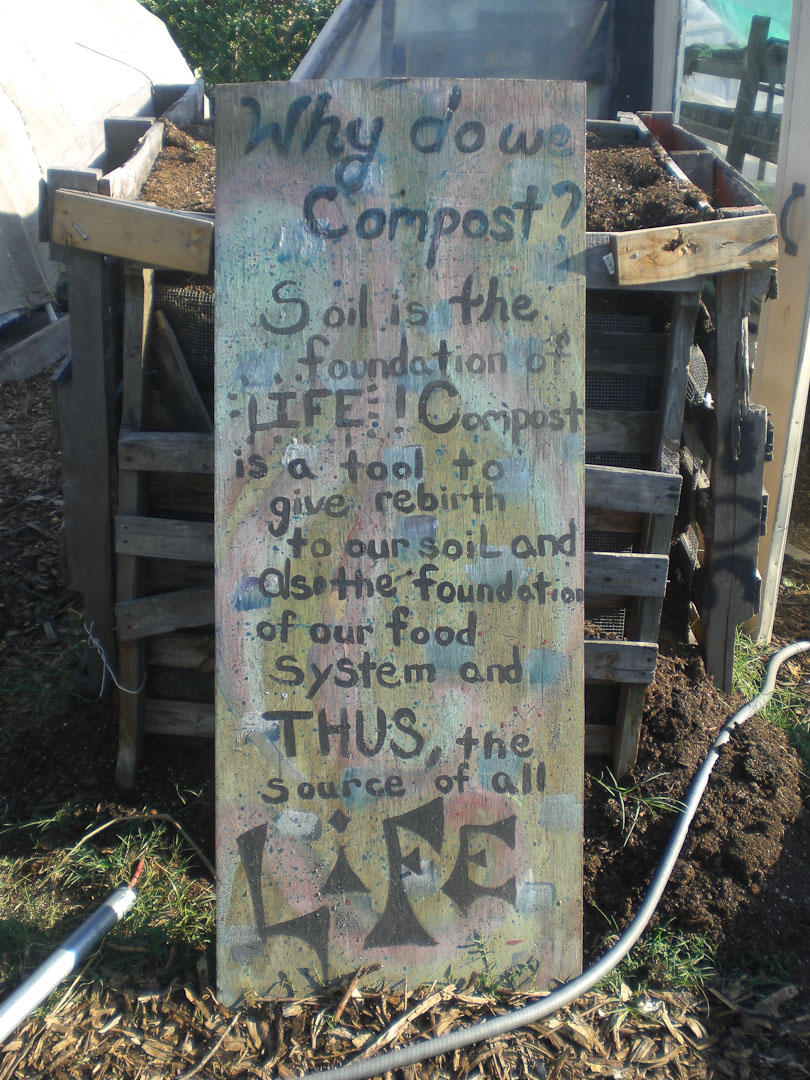 Why do we
Compost?
Soil is the
foundation of
LIFE! Compost
is a tool to
give rebirth
to our soiL and
also the foundation
of our food
system and
THUS, the
source of all
LiFE